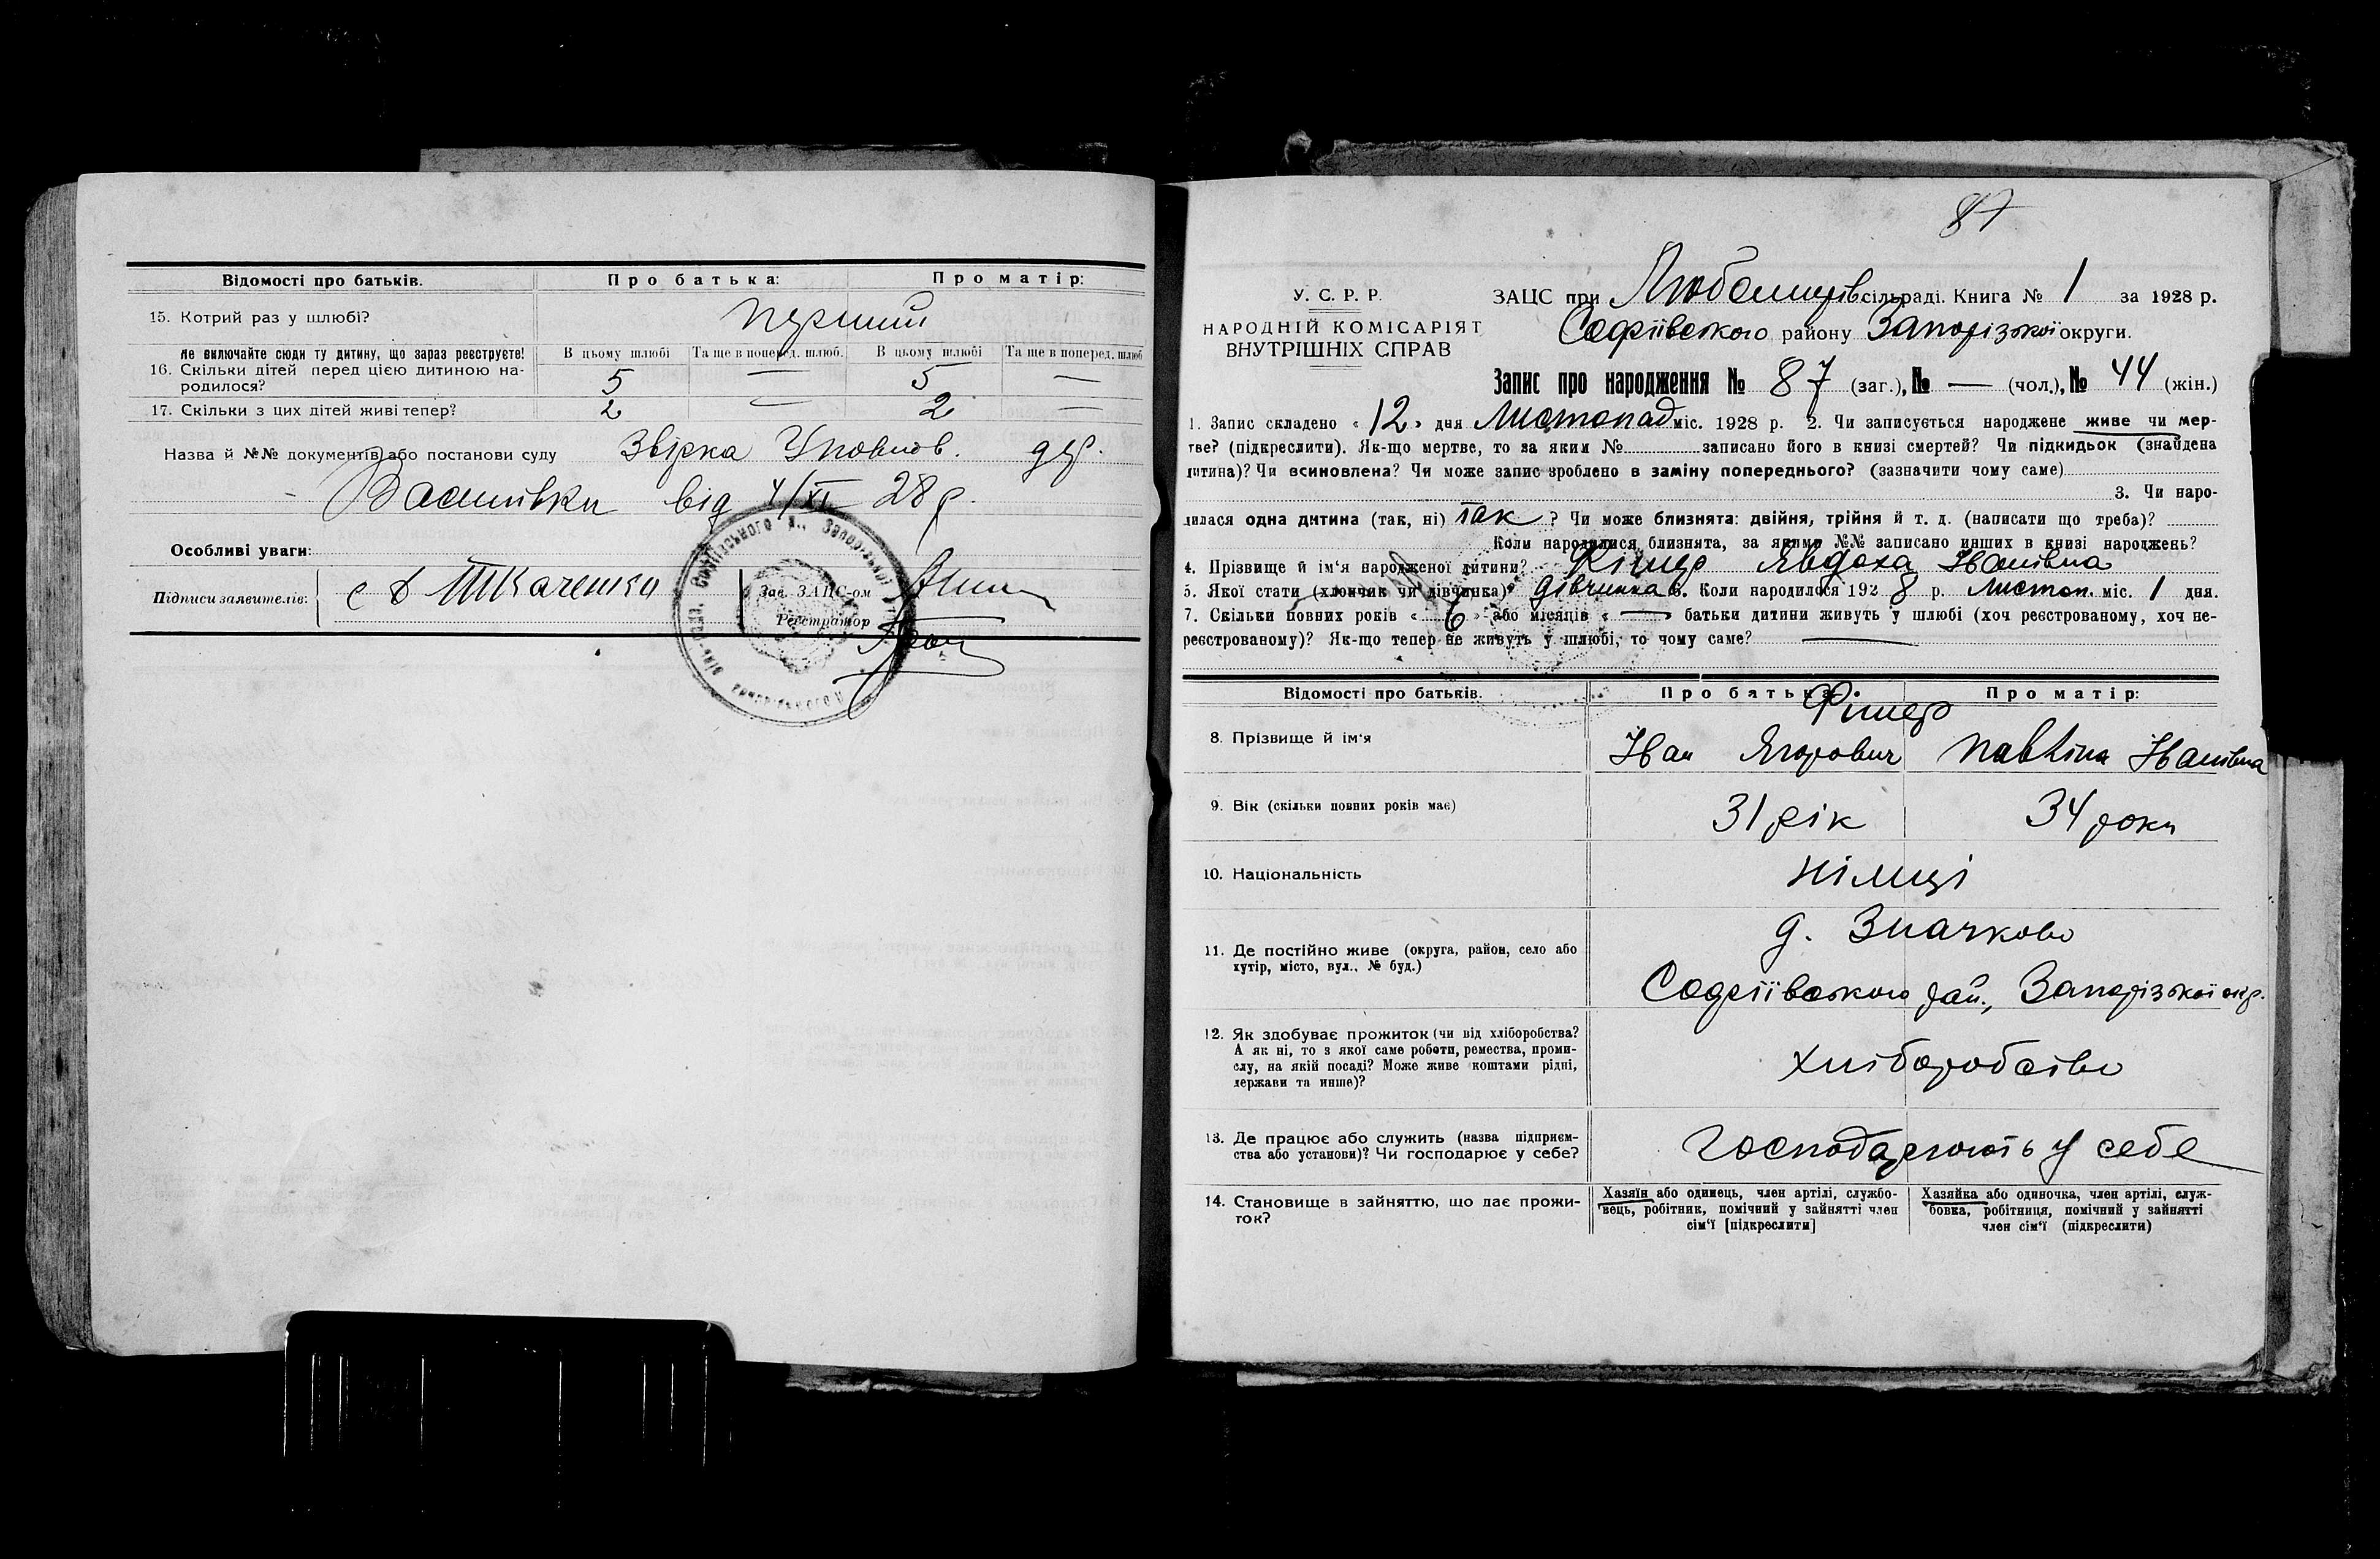 Відомості про батьків. Про батька: Про матір:
15. Котрий раз у шлюбі? перший
Не включайте сюди ту дитину, що зараз реєструєте! В цьому шлюбі Та ще в поперед. шлюб. В цьому шлюбі Та ще в поперед. шлюб
16. Скільки дітей перед цією дитиною на-
родилося? 5 — 5 —
17. Скільки з цих дітей живі тепер? 2 — 2 —
Назва й №№ документів або постанови суду Звірка Уповнов. дер.
Василівки від 4/XI 28 р.
Особливі уваги:
Підписи заявителів: Ткаченко Зав. ЗАГС-ом
Реєстратор
87
У. С. Р. Р.
НАРОДНІЙ КОМІСАРІЯТ
ВНУТРІШНІХ СПРАВ
ЗАЦС при сільраді. Книга № 1 за 1928 р.
Софіївського району Запорізької округи.
Запис про народження № 87 (заг.), № — (чол.), № 44 (жін.)
1. Запис складено « 12 » дня Листопад міс. 1928 р. 2. Чи записується народжене живе чи мер-
тве? (підкреслити). Як-що мертве, то за яким № записано його в книзі смертей? Чи підкидьок (знайдена
дитина)? Чи всиновлена? Чи може запис зроблено в заміну попереднього? (зазначити чому саме)
3. Чи наро-
дилася одна дитина (так, ні) так ? Чи може близнята: двійня, трійня й т. д. (написати що треба)?
Коли народилися близнята, за якими №№ записано инших в книзі народжень?
4. Прізвище й ім'я народженої дитини? Явдоха Іванівна
5. Якої стати (хлопчик чи дівчинка)? дівчинка 6. Коли народилося 1928 р. листоп. міс. 1 дня.
7. Скільки повних років « 6 » або місяців « — » батьки дитини живуть у шлюбі (хоч реєстрованому, хоч не-
реєстрованому)? Як-що тепер не живуть у шлюбі, то чому саме? —
Відомості про батьків. Про батька: Про матір:
Фішер
8. Прізвище й ім'я Іван Ягорович Павліна Іванівна
9. Вік (скільки повних років має) 31 рік 34 роки
10. Національність німці
11. Де постійно живе (округа, район, село або
хутір, місто, вул., № буд.) д. Значково
Софіївського рай., Запорізької окр.
12. Як здобуває прожиток (чи від хліборобства?
А як ні, то з якої саме роботи, ремества, проми-
слу, на якій посаді? Може живе коштами рідні,
держави та инше)? хліборобство
13. Де працює або служить (назва підприєм-
ства або установи)? Чи господарює у себе? господарюють у себе
14. Становище в зайняттю, що дає прожи-
ток?
Хазяїн або одинець, член артілі, службо-
вець, робітник, помічний у зайнятті член
сім'ї [підкреслити]
Хазяйка або одиночка, член артілі, служ-
бовка, робітниця, помічний у зайнятті
член сім'ї (підкреслити)